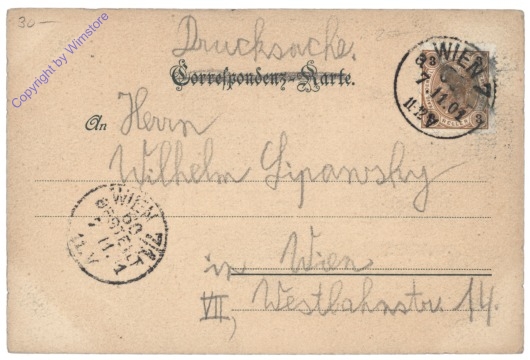 30-
Copyright by Wimstore
Drucksache.
Correspondenz-Karte.
WIEN 7
11.01
An Herrn
Wilhelm Lipawsky
WIEN 7/1
in Wien
VII, Westbahnstr. 14.